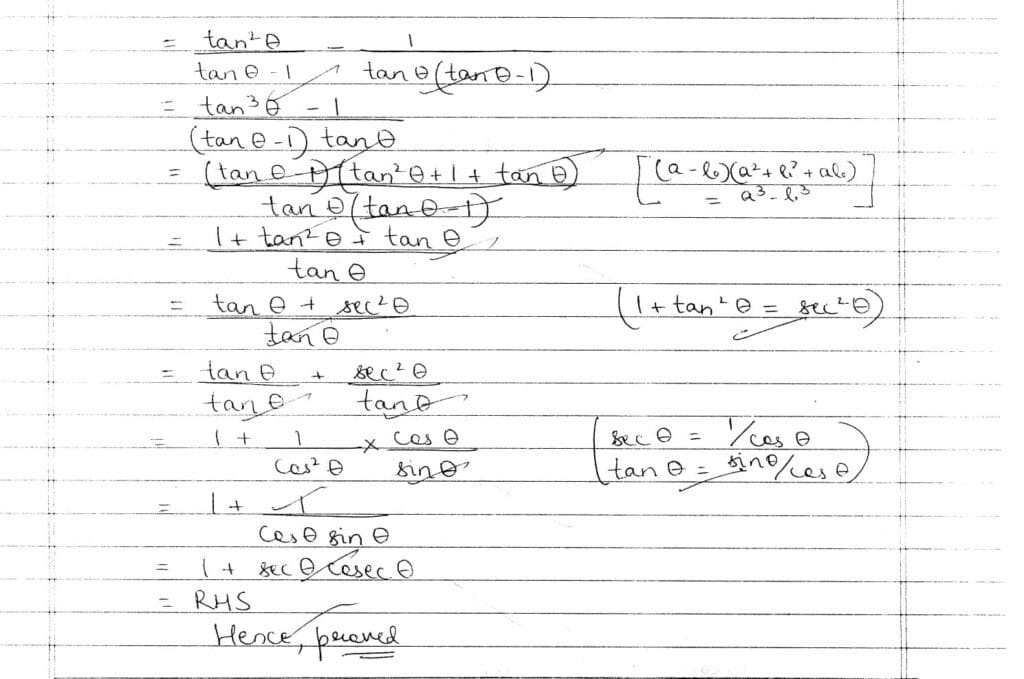 = tan²θ / tan θ - 1 - 1 / tan θ(tan θ-1)
= tan³θ - 1 / (tan θ -1) tan θ
= (tan θ - 1)(tan²θ + 1 + tan θ) / tan θ(tan θ - 1) [(a - b)(a² + b² + ab) = a³ - b³]
= 1 + tan²θ + tan θ / tan θ
= tan θ + sec²θ / tan θ (1 + tan²θ = sec²θ)
= tan θ / tan θ + sec²θ / tan θ
= 1 + 1 / cos²θ × cos θ / sin θ (sec θ = 1/cos θ tan θ = sinθ/cos θ)
= 1 + 1 / cos θ sin θ
= 1 + sec θ cosec θ
= RHS
Hence, proved